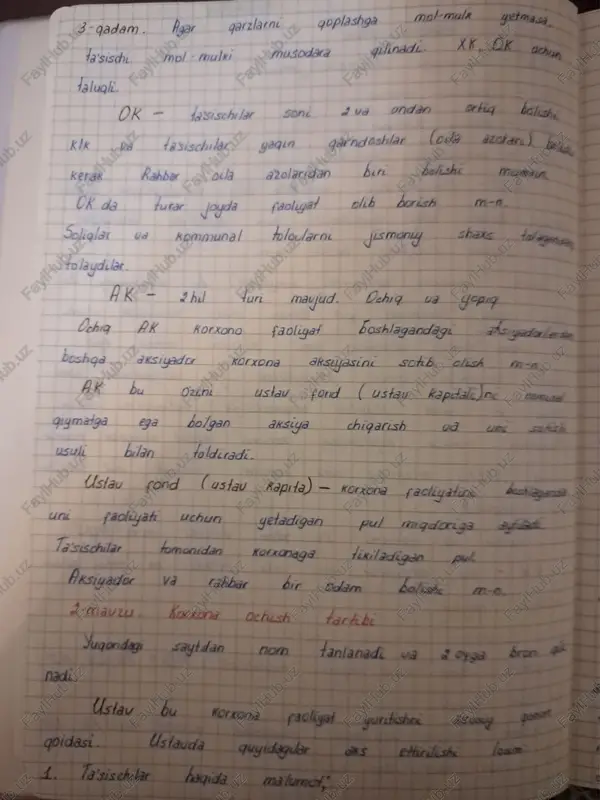 3-qadam. Agar qarzlarni qoplashga mol-mulk yetmasa,
ta'sischi mol-mulki musodara qilinadi. XK, OK uchun
taluqli.
OK – tasischilar soni 2 va undan ortiq bolishi
klk va tasischilar yaqin qarindoshlar (oila azolari)
kerak Rahbar oila azolaridan biri bolishi mumkin.
OK da turar joyda faoliyat olib borish m-n.
Soliqlar va kommunal tolovlarni jismoniy shaxs
tolaydilar.
AK – 2 hil turi mavjud. Ochiq va yopiq
Ochiq AK korxona faoliyat boshlagandagi
boshqa aksiyador korxona aksiyasini sotib olish m-n.
AK bu o'zini ustav fond (ustav kapitali)ni
qiymatga ega bo'lgan aksiya chiqarish va uni sotish
usuli bilan toldiradi.
Ustav fond (ustav kapita) – korxona faoliyatini
uni faoliyati uchun yetadigan pul miqdoriga aytiladi
Ta'sischilar tomonidan korxonaga tikiladigan pul.
Aksiyador va rahbar bir odam bolishi m-n.
2-mavzu. Korxona ochish tartibi
Yuqoridagi saytdan nom tanlanadi va 2 oyga bron qili
nadi.
Ustav bu korxona faoliyat yuritishni asosiy qonun
qoidasi. Ustavda quyidagilar aks ettirilishi lozim
1. Ta'sischilar haqida malumot;
FaylHub.uz